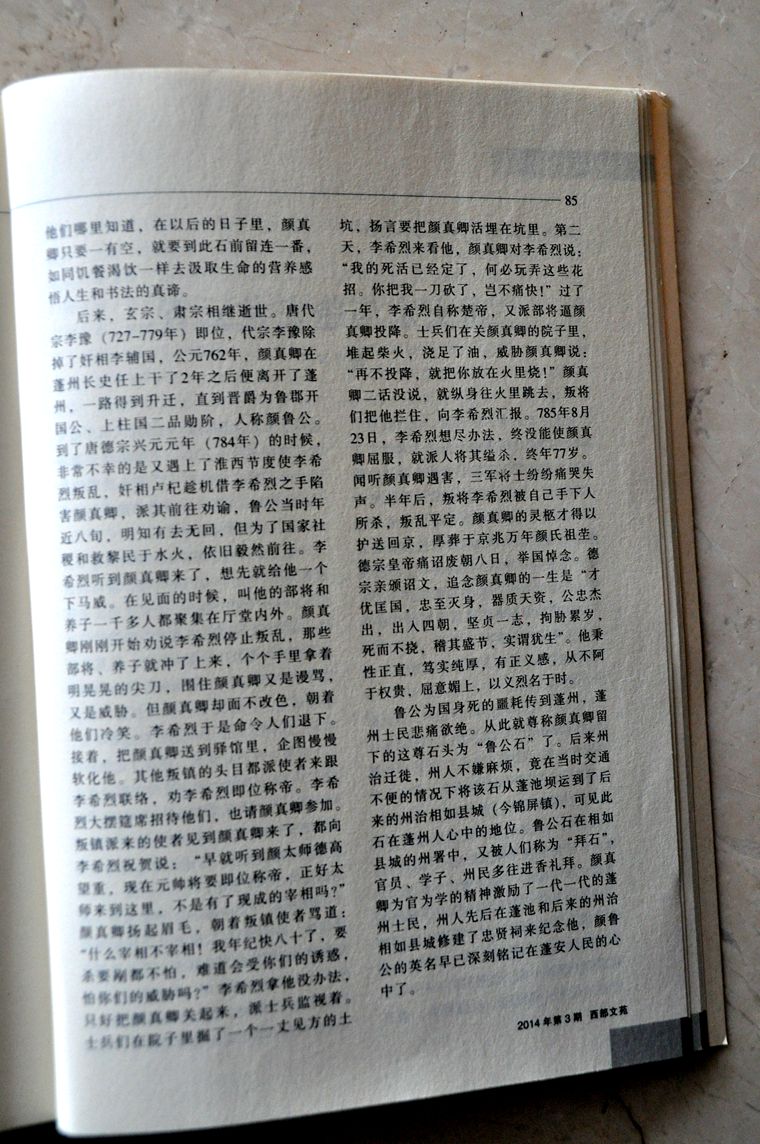 85
他们哪里知道，在以后的日子里，颜真
卿只要一有空，就要到此石前留连一番，
如同饥餐渴饮一样去汲取生命的营养感
悟人生和书法的真谛。
后来，玄宗、肃宗相继逝世。唐代
宗李豫（727-779年）即位，代宗李豫除
掉了奸相李辅国，公元762年，颜真卿在
蓬州长史任上干了2年之后便离开了蓬
州，一路得到升迁，直到晋爵为鲁郡开
国公、上柱国二品勋阶，人称颜鲁公。
到了唐德宗兴元元年（784年）的时候，
非常不幸的是又遇上了淮西节度使李希
烈叛乱，奸相卢杞趁机借李希烈之手陷
害颜真卿，派其前往劝谕，鲁公当时年
近八旬，明知有去无回，但为了国家社
稷和救黎民于水火，依旧毅然前往。李
希烈听到颜真卿来了，想先就给他一个
下马威。在见面的时候，叫他的部将和
养子一千多人都聚集在厅堂内外。颜真
卿刚刚开始劝说李希烈停止叛乱，那些
部将、养子就冲了上来，个个手里拿着
明晃晃的尖刀，围住颜真卿又是谩骂，
又是威胁。但颜真卿却面不改色，朝着
他们冷笑。李希烈于是命令人们退下。
接着，把颜真卿送到驿馆里，企图慢慢
软化他。其他叛镇的头目都派使者来跟
李希烈联络，劝李希烈即位称帝。李希
烈大摆筵席招待他们，也请颜真卿参加。
叛镇派来的使者见到颜真卿来了，都向
李希烈祝贺说：“早就听到颜太师德高
望重，现在元帅将要即位称帝，正好太
师来到这里，不是有了现成的宰相吗？”
颜真卿扬起眉毛，朝着叛镇使者骂道：
“什么宰相不宰相！我年纪快八十了，要
杀要剐都不怕，难道会受你们的诱惑，
怕你们的威胁吗？”李希烈拿他没办法，
只好把颜真卿关起来，派士兵监视着。
士兵们在院子里掘了一个一丈见方的土
坑，扬言要把颜真卿活埋在坑里。第二
天，李希烈来看他，颜真卿对李希烈说：
“我的死活已经定了，何必玩弄这些花
招。你把我一刀砍了，岂不痛快！”过了
一年，李希烈自称楚帝，又派部将逼颜
真卿投降。士兵们在关颜真卿的院子里，
堆起柴火，浇足了油，威胁颜真卿说：
“再不投降，就把你放在火里烧！”颜真
卿二话没说，就纵身往火里跳去，叛将
们把他拦住，向李希烈汇报。785年8月
23日，李希烈想尽办法，终没能使颜真
卿屈服，就派人将其缢杀，终年77岁。
闻听颜真卿遇害，三军将士纷纷痛哭失
声。半年后，叛将李希烈被自己手下人
所杀，叛乱平定。颜真卿的灵柩才得以
护送回京，厚葬于京兆万年颜氏祖茔。
德宗皇帝痛诏废朝八日，举国悼念。德
宗亲颁诏文，追念颜真卿的一生是“才
优匡国，忠至灭身，器质天资，公忠杰
出，出入四朝，坚贞一志，拘胁累岁，
死而不挠，稽其盛节，实谓犹生”。他秉
性正直，笃实纯厚，有正义感，从不阿
于权贵，屈意媚上，以义烈名于时。
鲁公为国身死的噩耗传到蓬州，蓬
州士民悲痛欲绝。从此就尊称颜真卿留
下的这尊石头为“鲁公石”了。后来州
治迁徙，州人不嫌麻烦，竟在当时交通
不便的情况下将该石从蓬池坝运到了后
来的州治相如县城（今锦屏镇），可见此
石在蓬州人心中的地位。鲁公石在相如
县城的州署中，又被人们称为“拜石”，
官员、学子、州民多往进香礼拜。颜真
卿为官为学的精神激励了一代一代的蓬
州士民，州人先后在蓬池和后来的州治
相如县城修建了忠贤祠来纪念他，颜鲁
公的英名早已深刻铭记在蓬安人民的心
中了。
2014年第3期 西部文苑